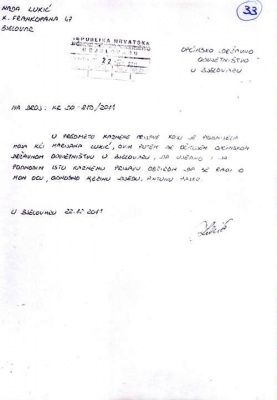 NADA LUKIĆ
K. FRANKOPANA 47
BJELOVAR
33
REPUBLIKA HRVATSKA
BJELOVAR
22
OPĆINSKO DRŽAVNO
ODVJETNIŠTVO
U BJELOVARU
NA BROJ: KR DO 2011
U PREDMETU KAZNENE PRIJAVE KOJU JE PODNIJELA
MOJA KĆI LUKIĆ, OVIM PUTEM SE OPĆINSKOM
DRŽAVNOM ODVJETNIŠTVU U BJELOVARU, DA UJEDNO I JA
PODNOSIM ISTU KAZNENU PRIJAVU OBZIROM DA SE RADI O
MOM OCU, ODNOSNO NJEZINOM DJEDU,
U BJELOVARU 22.12.2011